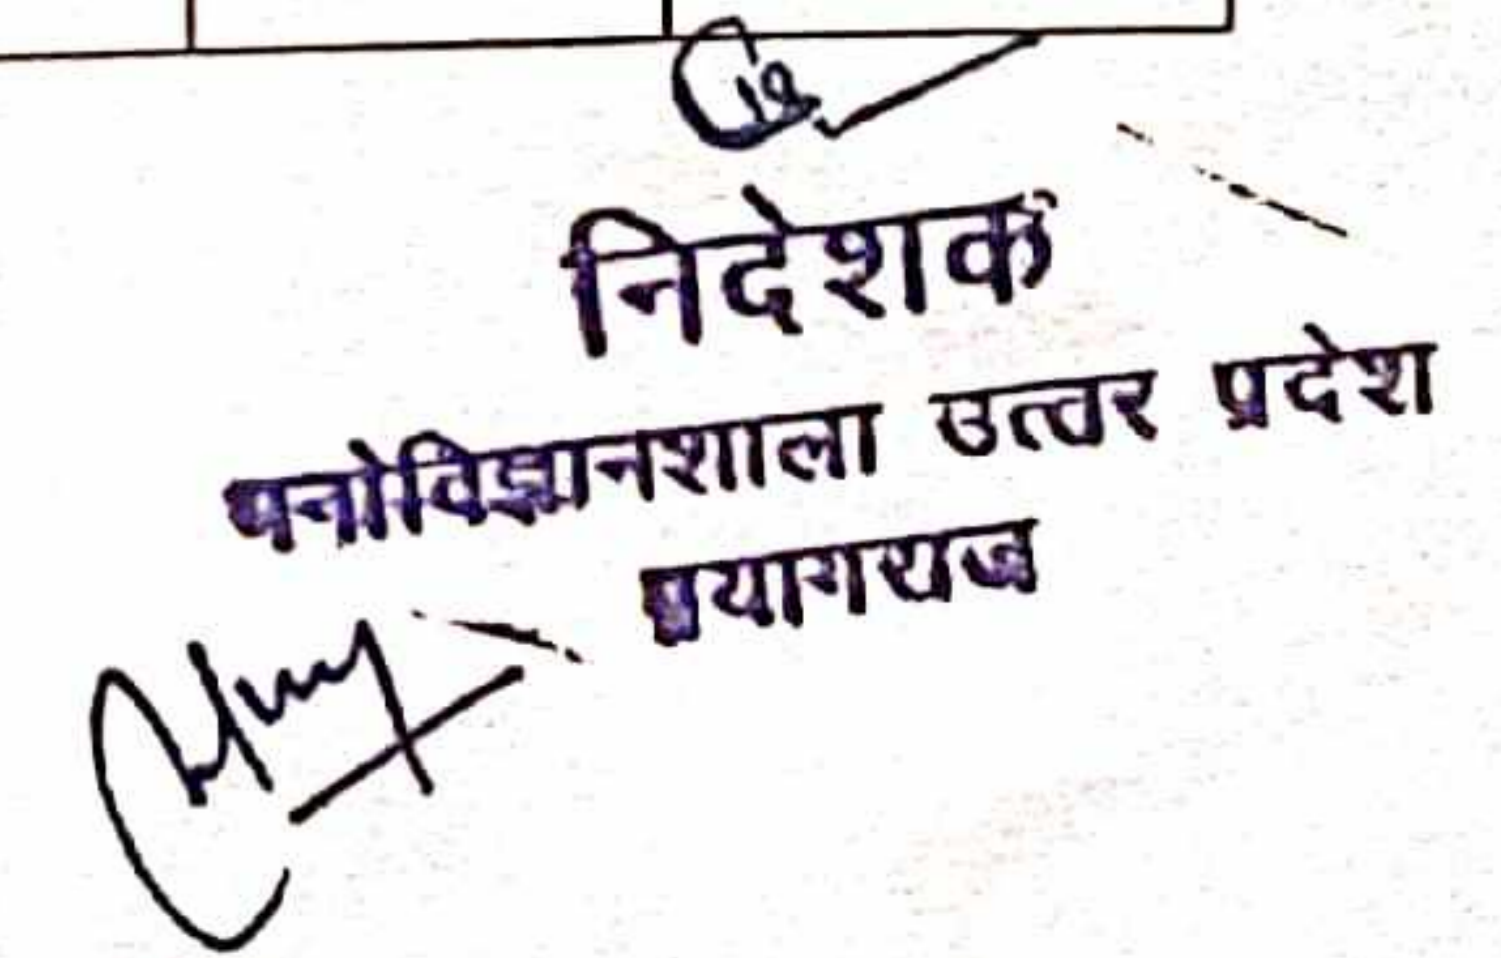 निदेशक
मनोविज्ञानशाला उत्तर प्रदेश
प्रयागराज